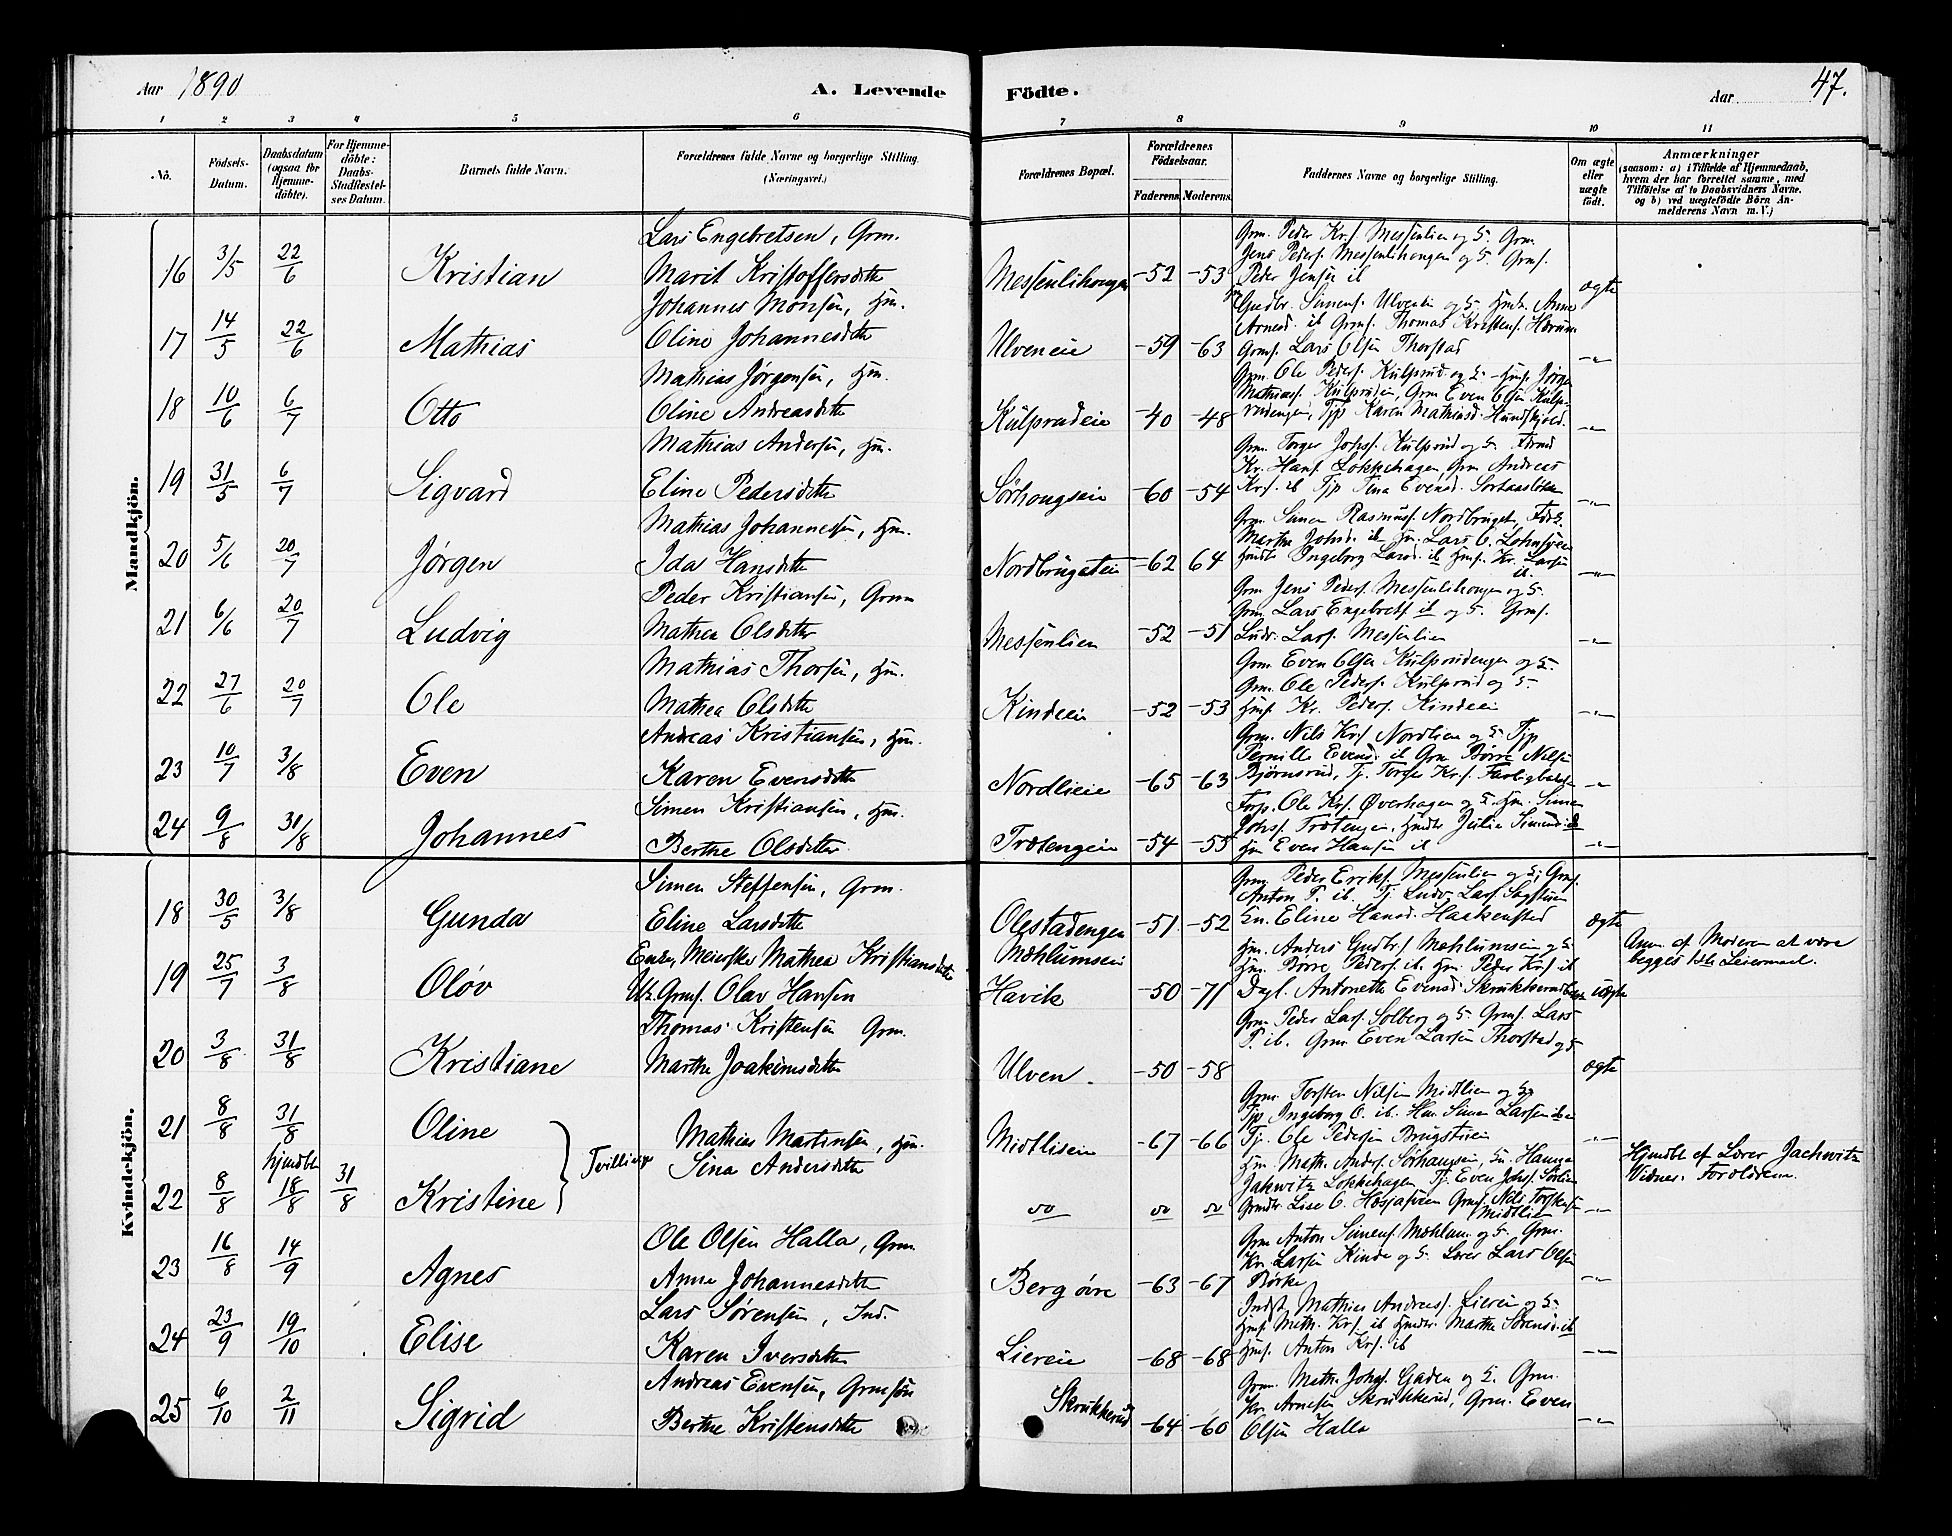 Aar 1890
A. Levende Födte.
Aar
47.
1 2 3 4 5 6 7 8 9 10 11
No.
Födsels-Datum.
Daabsdatum (ogsaa for Hjemme-döbte).
For Hjemme-döbte: Daabs-Stadfæstelses Datum.
Barnets fulde Navn.
Forældrenes fulde Navne og borgerlige Stilling.
(Næringsvei.)
Forældrenes Bopæl.
Forældrenes Födselsaar.
Faderens. Moderens.
Faddernes Navne og borgerlige Stilling.
Om ægte eller uægte födt.
Anmærkninger
(saasom: a) i Tilfælde af Hjemmedaab,
hvem der har forrettet samme, med
Tilföielse af to Daabsvidners Navne,
og b) ved uægtefödte Börn An-
melderens Navn m. V.)
Mandkjön.
16 3/5 22/6 Kristian
Lars Engebretsen, Grm.
Marit Kristoffersdtr
Messenlihongen -52 -53
Grm. Peder Krs. Messenlien og H. Grm.
Jens Peders. Messenlihongen og H. Grmf.
Peder Jensen ib
ægte
17 14/5 22/6 Mathias
Johannes Monsen, Hm.
Oline Johannesdtr
Ulveneie -59 -63
Gudbr. Simens. Ulveneie og H. Hmdtr. Anne
Arnesd. ib Grmf. Thomas Kristens.
Grmf. Lars Olsen Thorstad
-"-
18 10/6 6/7 Otto
Mathias Jørgensen, Hm.
Oline Andreasdtr
Kulprudeie -40 -48
Grm. Ole Peders. Kulprud og H. Hmf. Jørgen
Mathiass. Kulprudeie, Grm Even Olsen Kulp-
rudengen, Tjp Karen Mathiasd.
-"-
19 31/5 6/7 Sigvard
Mathias Andersen, Hm.
Eline Pedersdtr
Sørhougseie -60 -54
Grm. Torger Johs. Kulprud og H.
Kr. Hans. Lokkehagen, Grm Andreas
Krs. ib Tjp Tina Evensd.
-"-
20 5/6 20/7 Jørgen
Mathias Johannessen, Hm.
Ida Hansdtr
Nordbrugeteie -62 64
Grm. Simen Rasmuss. Nordbruget,
Marthe Johsd. ib Hm. Lars O.
Hmdtr Ingeborg Larsd. ib Hmf. Kr. Larsen
ib.
-"-
21 6/6 20/7 Ludvig
Peder Kristiansen, Grm
Mathea Olsdtr
Messenlien -52 -51
Grm Jens Peders. Messenlihongen og H.
Grm. Lars Engebrets. ib og H. Grmf.
Ludv. Lars. Messenlien
-"-
22 27/6 20/7 Ole
Mathias Thorsen, Hm.
Mathea Olsdtr
Kindeeie -52 -53
Grm Even Olsen Kulprudengen og H.
Grm. Ole Peders. Kulprud og H.
Hmf Kr. Peders. Kindeeie
-"-
23 10/7 3/8 Even
Andreas Kristiansen, Hm.
Karen Evensdtr
Nordlieie -65 -63
Grm. Nils Krs. Nordlien og H. Tjp
Pernille Evensd. ib Grm Børre Nilsen
Bjørnsrud, Tj.
-"-
24 9/8 31/8 Johannes
Simen Kristiansen, Hm.
Berthe Olsdtr.
Trøtengeie -54 -55
Forp. Ole Krs. Øverhagen og H. Hm. Simen
Johs. Trøtengeie, Hmdtr Julia Simensd. ib
Hm Even Hansen ib
-"-
Kvindekjön.
18 30/5 3/8 Gunda
Simen Steffensen, Grm.
Eline Larsdtr
Olestadengen -51 -52
Grm. Peder Eriks. Messenlien og H. Grmf.
Anton P. ib. Tj. Ludv. Lars.
En. Eline Hansd. Haakenstad
ægte
19 25/7 3/8 Oløv
Enke Meierske Mathea Kristiansdtr
Uk. Grmf. Olav Hansen
Mæhlumseie
Havik -50 -71
Hm. Anders Gudbrs. Mæhlumseie og H.
Hm. Børre Peders. ib. Hm. Peder Krs. ib
Dagl. Antonette Evensd.
uægte
Anm. af Moderen at være
begges 1ste Leiermaal.
20 3/8 31/8 Kristiane
Thomas Kristensen Grm.
Marthe Joakimsdtr
Ulven -50 -58
Grm Peder Lars. Solberg og H. Grmf. Lars
P. ib. Grm Even Larsen Thorstad og H
ægte
21 8/8 31/8 Oline
Tvillinge
Mathias Martinsen, Hm.
Sina Andersdtr
Midtlieeie -67 -66
Grm. Torsten Nilsen Midtlien og H
Tjp Ingeborg O. ib. Hm. Simen Larsen
Tj. Ole Pedersen
-"-
22 8/8 hjmdbt 18/8 31/8 Kristine
do do do
Hm. Math. Anders. Sørhaugseie, En. Hanna
Jakwitz Lokkehagen Tj. Even Johs.
Grmdtr Lise O. Grmf. Nils Torstensen
Midtlien
-"-
Hjmdbt af Lærer Jachwitz
Vidner. Forældrene.
23 16/8 14/9 Agnes
Ole Olsen Halla, Grm
Anne Johannesdtr
Berg øvre -63 -67
Grm Anton Simens. Mæhlum og H. Grm.
Kr. Larsen Kinde og H. Lærer Lars Olsen
Børke
-"-
24 23/9 19/10 Elise
Lars Sørensen, Ind.
Karen Iversdtr
Liereie -68 -68
Indst. Mathias Andreass. Liereie og H.
Hmf. Math. Krs. ib Hmdtr. Marthe Sørensd. ib
Hmf. Anton Krs. ib
-"-
25 6/10 2/11 Sigrid
Andreas Evensen, Grmsøn
Berthe Kristensdtr
Skrukkerud -64 -60
Grm. Math. Johs. Gaden og H. Grm.
Kr. Arnesen Skrukkerud, Grm. Even
Olsen Halla
-"-